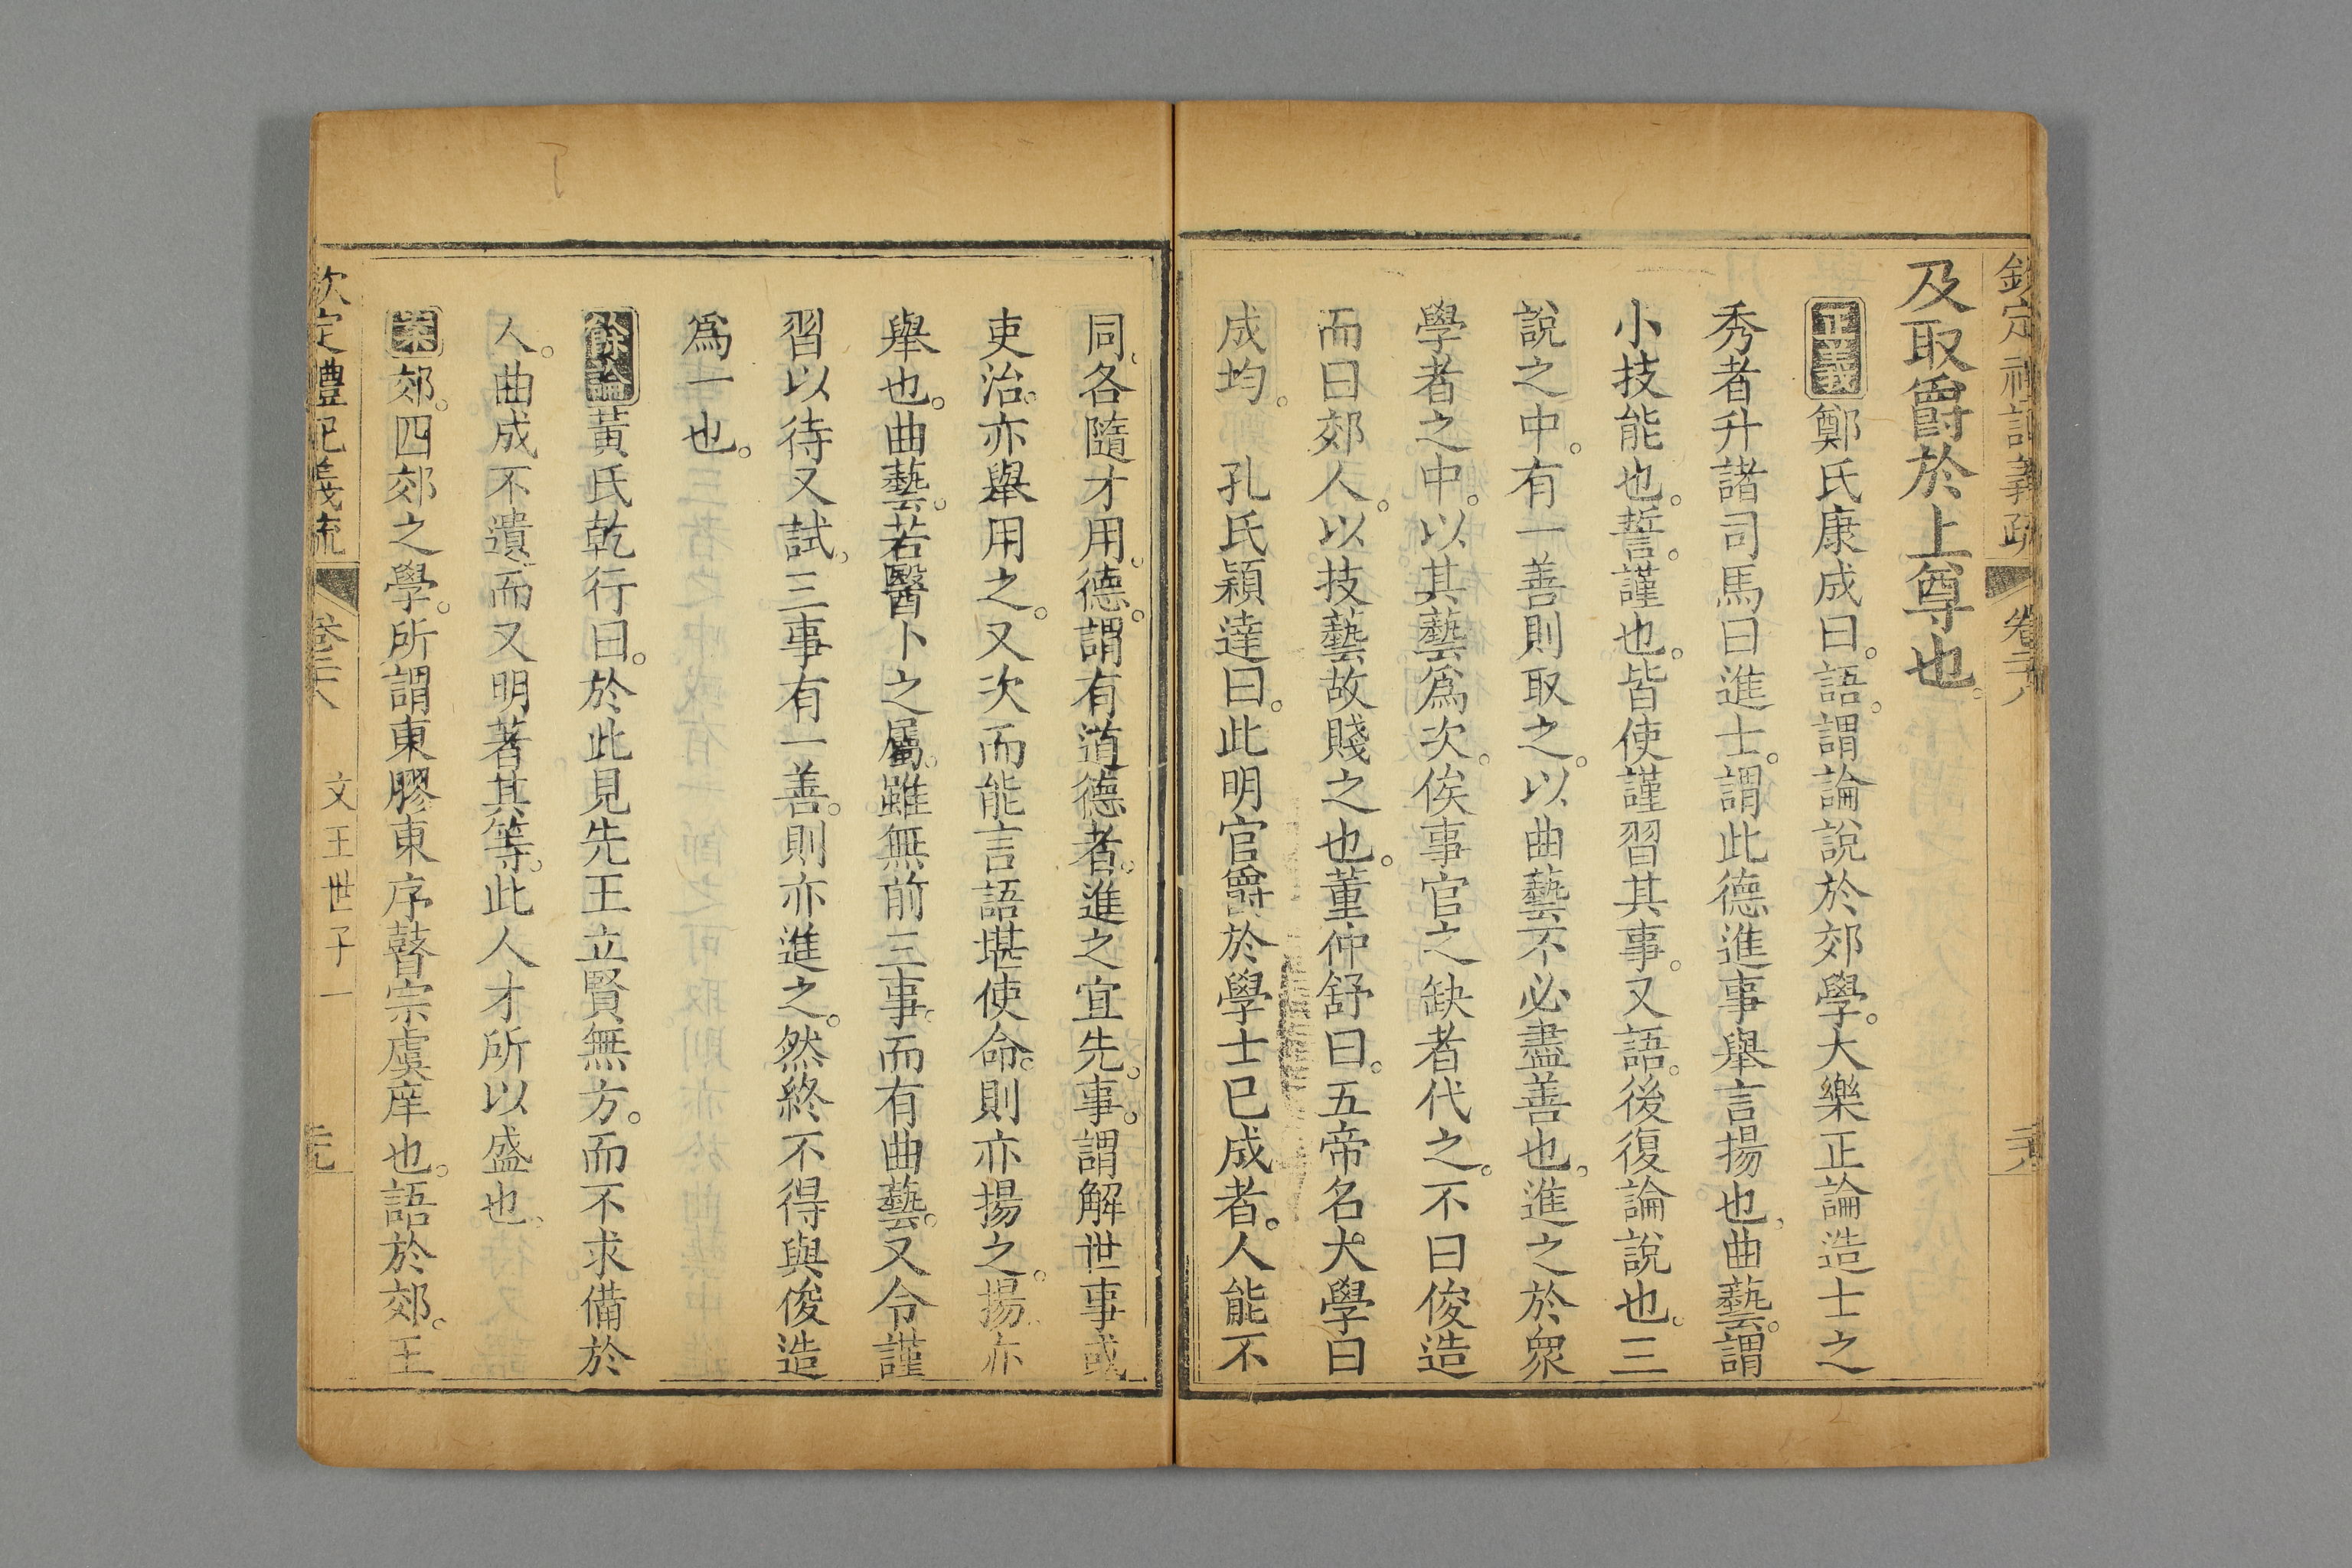 欽定禮記義疏 卷二十八 二十八
及取爵於上尊也。
正義 鄭氏康成曰。語。謂論說於郊學。大樂正論造士之
秀者升諸司馬曰進士。謂此德進事舉言揚也。曲藝。謂
小技能也。誓。謹也。皆使謹習其事。又語。後復論說也。三
說之中。有一善則取之。以曲藝不必盡善也。進之於衆
學者之中。以其藝爲次。俟事官之缺者代之。不曰俊造
而曰郊人。以技藝故賤之也。董仲舒曰。五帝名大學曰
成均。 孔氏穎達曰。此明官爵於學士已成者。人能不
同。各隨才用。德。謂有道德者。進之宜先。事。謂解世事或
吏治。亦舉用之。又次而能言語堪使命。則亦揚之。揚亦
舉也。曲藝。若醫卜之屬。雖無前三事。而有曲藝。又令謹
習以待又試。三事有一善。則亦進之。然終不得與俊造
爲一也。
餘論 黃氏乾行曰。於此見先王立賢無方。而不求備於
人。曲成不遺。而又明著其等。此人才所以盛也。
案 郊。四郊之學。所謂東膠東序瞽宗虞庠也。語於郊。王
欽定禮記義疏 卷二十八 文王世子一 二十九